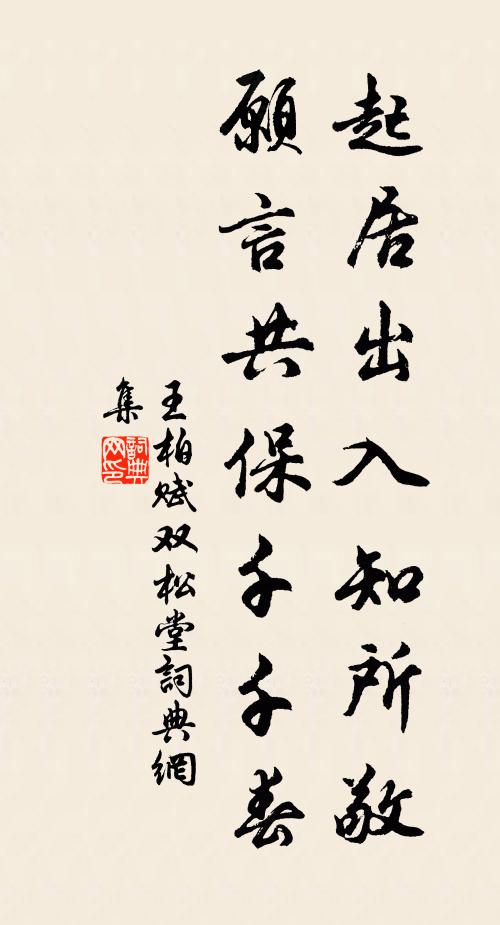 起居出入知所敬
願言共保千千春
王柏赋双松堂詞典網
集
詞典
网印